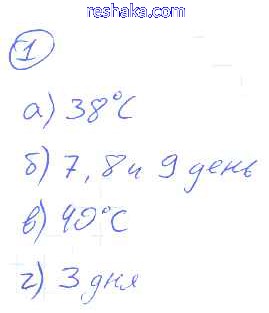 reshaka.com
1
а) 38°C
б) 7, 8 и 9 день
в) 40°C
г) 3 дня